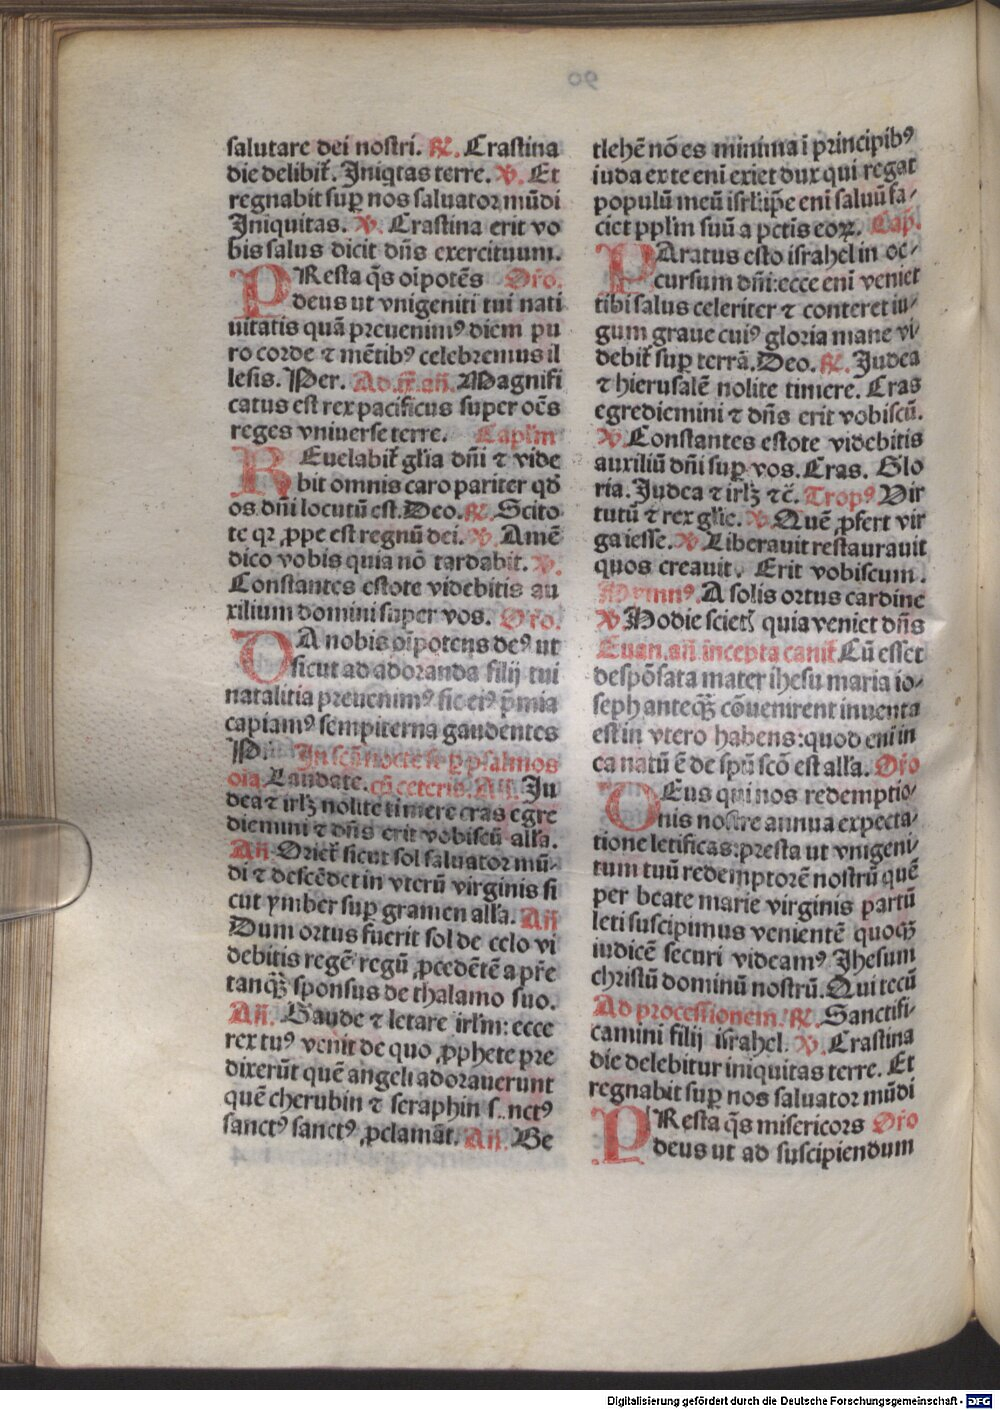 salutare dei nostri. R̷. Crastina
die delibit᷑. Iniq̇tas terre. V̷. Et
regnabit sup̲ nos saluator mūdi
Iniquitas. V̷. Crastina erit vo
bis salus dicit dn̄s exercituum.
PResta q̄s oīpotēs Or̄o.
deus ut vnigeniti tui nati
uitatis quā preuenimꝰ diem pu
ro corde ⁊ mētibꝰ celebremus il
lesis. Per. Ad .añ. Magnifi
catus est rex pacificus super oēs
reges vniuerse terre. Capl'm
REuelabit᷑ gl'ia dn̄i ⁊ vide
bit omnis caro pariter qđ
os dn̄i locutū est. Deo. R̷. Scito
te qꝛ ꝓpe est regnū dei. V̷. Amē
dico vobis quia nō tardabit. V̷.
Constantes estote videbitis au
xilium domini super vos. Or̄o.
DA nobis oīpotens deꝰ ut
sicut ad adoranda filij tui
natalitia preuenimꝰ sic eiꝰ p̄mia
capiamꝰ sempiterna gaudentes
P. In scā nocte  ꝑ psalmos
oīa Laudate. cū ceteris. Añ. Iu
dea ⁊ irlꝫ nolite timere cras egre
diemini ⁊ dn̄s erit vobiscū all'a.
Añ Oriet᷑ sicut sol saluator mū-
di ⁊ descēdet in vterū virginis si
cut ymber sup̲ gramen all'a. Añ
Dum ortus fuerit sol de celo vi
debitis regē regū ꝓcedētē a pr̄e
tanqꝫ sponsus de thalamo suo.
Añ. Gaude ⁊ letare irl'm: ecce
rex tuꝰ venit de quo ꝓphete pre
dixerūt quē angeli adorauerunt
quē cherubin ⁊ seraphin s..nctꝰ
sanctꝰ sanctꝰ ꝓclamāt. Añ. Be
tlehē nō es minima ī principibꝰ
iuda ex te enī exiet dux qui regat
populū meū isrl' ip̄e enī saluū fa-
ciet ppl'm suū a pctis eoꝝ. Cap̄.
PAratus esto israhel in oc-
cursum dn̄i: ecce enī veniet
tibi salus celeriter ⁊ conteret iu-
gum graue cuiꝰ gloria mane vi-
debit᷑ sup̲ terrā. Deo. R̷. Iudea
⁊ hierusalē nolite timere. Cras
egrediemini ⁊ dn̄s erit vobiscū.
V̷. Constantes estote videbitis
auxiliū dn̄i sup̲ vos. Cras. Glo
ria. Iudea ⁊ irlꝫ ⁊c̄. Tropꝰ Vir
tutū ⁊ rex gl'ie. V̷ Quē ꝓfert vir
ga iesse. V̷ Liberauit restaurauit
quos creauit. Erit vobiscum.
Hymnꝰ. A solis ortus cardine
V̷ Hodie sciet᷑ quia veniet dn̄s
Euan. añ. incepta canit᷑. Cū esset
despōsata mater ihesu maria io-
seph anteqꝫ cōuenirent inuenta
est in vtero habens: quod enī in
ea natū ē de spū scō est all'a. Or̄o
DEus qui nos redemptio-
nis nostre annua expecta-
tione letificas: presta ut vnigeni
tum tuū redemptorē nostrū quē
per beate marie virginis partū
leti suscipimus venientē quoqꝫ
iudicē securi videamꝰ Ihesum
christū dominū nostrū. Qui tecū
Ad processionem. R̷. Sanctifi-
camini filij israhel. V̷. Crastina
die delebitur iniquitas terre. Et
regnabit sup̲ nos saluator mūdi
PResta q̄s misericors Or̄o
deus ut ad suscipiendum
Digitalisierung gefördert durch die Deutsche Forschungsgemeinschaft - DFG